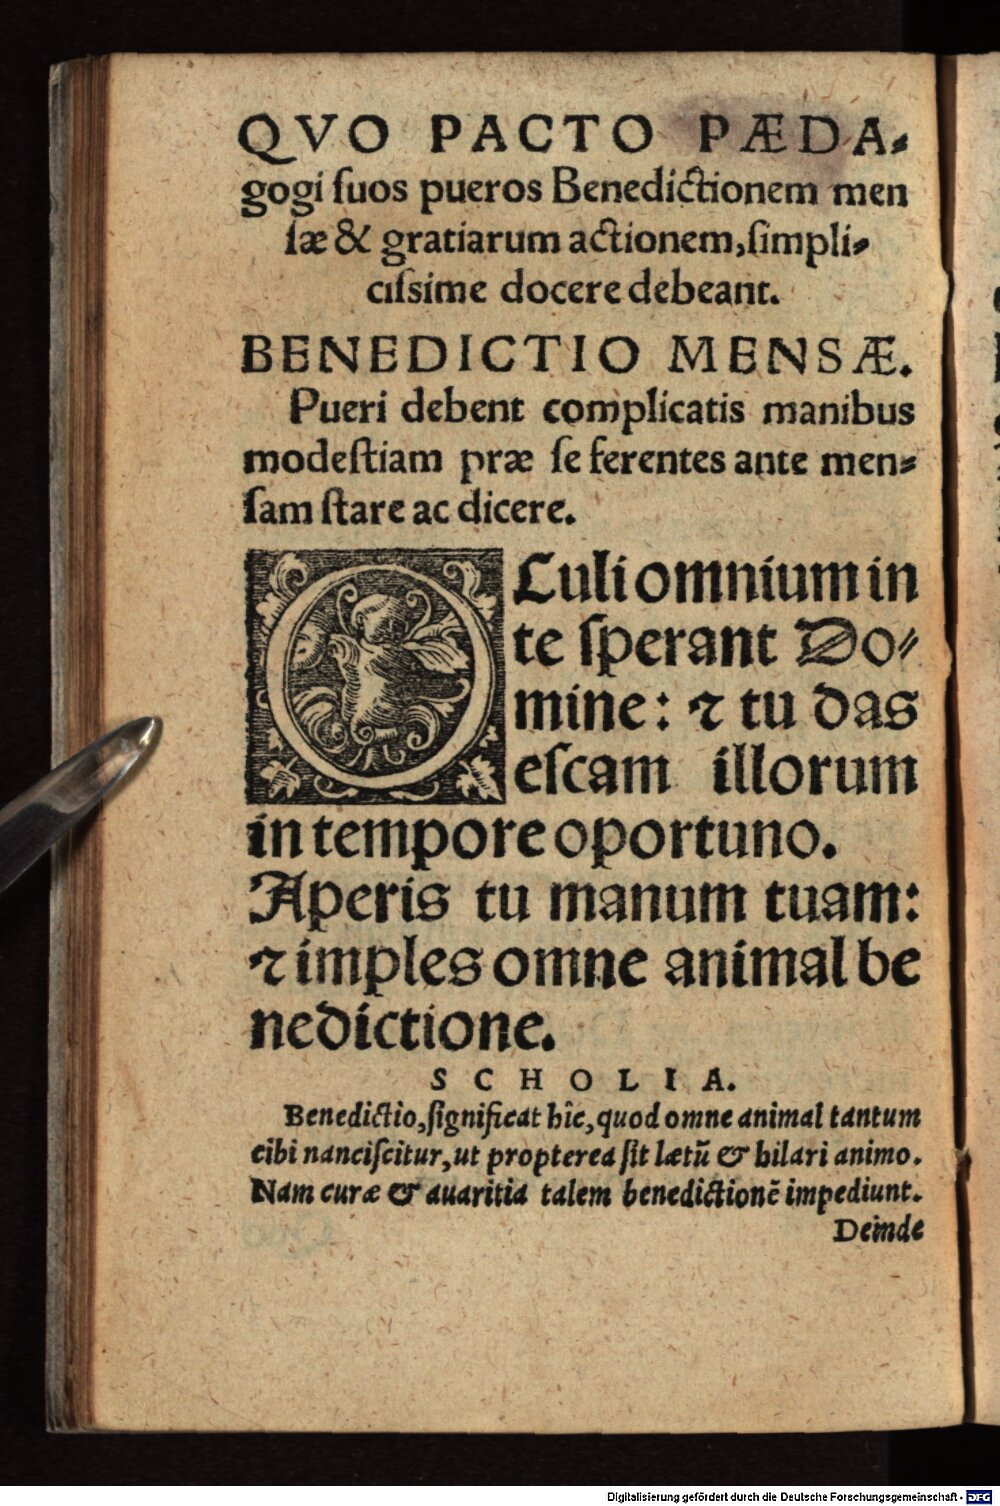 QVO PACTO PÆDA⸗
gogi ſuos pueros Benedictionem men
ſæ & gratiarum actionem, ſimpli⸗
ciſsime docere debeant.
BENEDICTIO MENSÆ.
Pueri debent complicatis manibus
modeſtiam præ ſe ferentes ante men⸗
ſam ſtare ac dicere.
OCuli omnium in
te ſperant Do⸗
mine: ⁊ tu das
eſcam illorum
in tempore oportuno.
Aperis tu manum tuam:
⁊ imples omne animal be
nedictione.
SCHOLIA.
Benedictio, ſignificat hîc, quod omne animal tantum
cibi nanciſcitur, ut propterea ſit lætũ & hilari animo.
Nam curæ & auaritia talem benedictionẽ impediunt.
Deinde
Digitalisierung gefördert durch die Deutsche Forschungsgemeinschaft - DFG